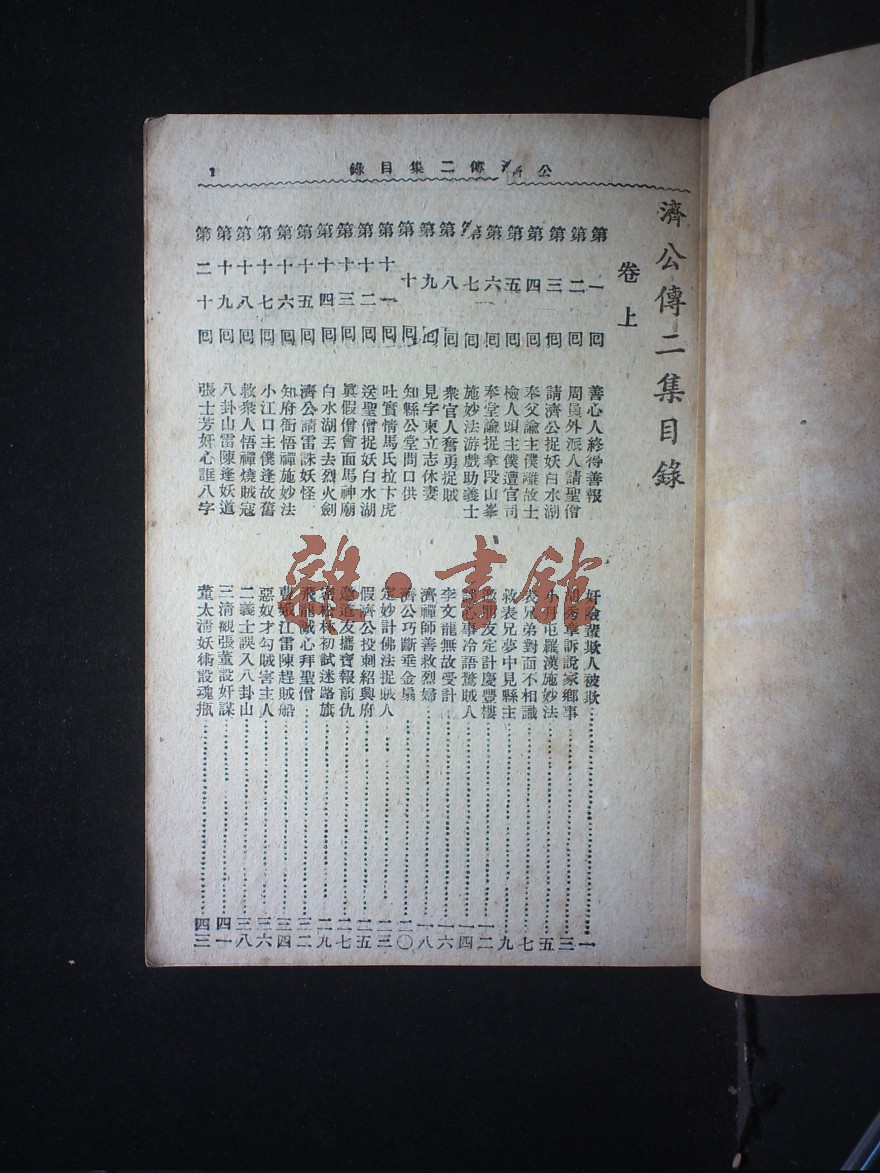 濟公傳二集目錄
1
濟公傳二集目錄
卷上
第一回 善心人終得善報 奸險輩欺人被欺 一
第二回 周員外派人請聖僧 秀章訴說家鄉事 三
第三回 請濟公捉妖白水湖 小月屯羅漢施妙法 五
第四回 奉父諭主僕離故土 表兄弟對面不相識 七
第五回 檢人頭主僕遭官司 救表兄夢中見縣主 九
第六回 奉堂諭捉拿段山峯 朋友定計慶豐樓 一二
第七回 施妙法游戲助義士 心事冷語驚賊人 一四
第八回 衆官人奮勇捉賊 李文龍無故受計 一六
第九回 見字柬立志休妻 濟禪師善救烈婦 一八
第十回 知縣公堂問口供 濟公巧斷垂金扇 二〇
第十一回 吐實情馬氏拉卞虎 定妙計佛法捉賊人 二三
第十二回 送聖僧捉妖白水湖 假濟公投刺紹興府 二五
第十三回 眞假僧會面馬神廟 邀道友攜寶報前仇 二七
第十四回 白水湖丟去烈火劍 密松林初試迷路旗 二九
第十五回 濟公請雷誅妖怪 飛龍誠心拜聖僧 三二
第十六回 知府衙悟禪施妙法 曹娥江雷陳趕賊船 三四
第十七回 小江口主僕逢故舊 惡奴才勾賊害主人 三六
第十八回 救衆人悟禪燒賊寇 二義士誤入八卦山 三八
第十九回 八卦山雷陳逢妖道 三淸觀張董設奸謀 四一
第二十回 張士芳奸心誆八字 董太淸妖術設魂瓶 四三
書館